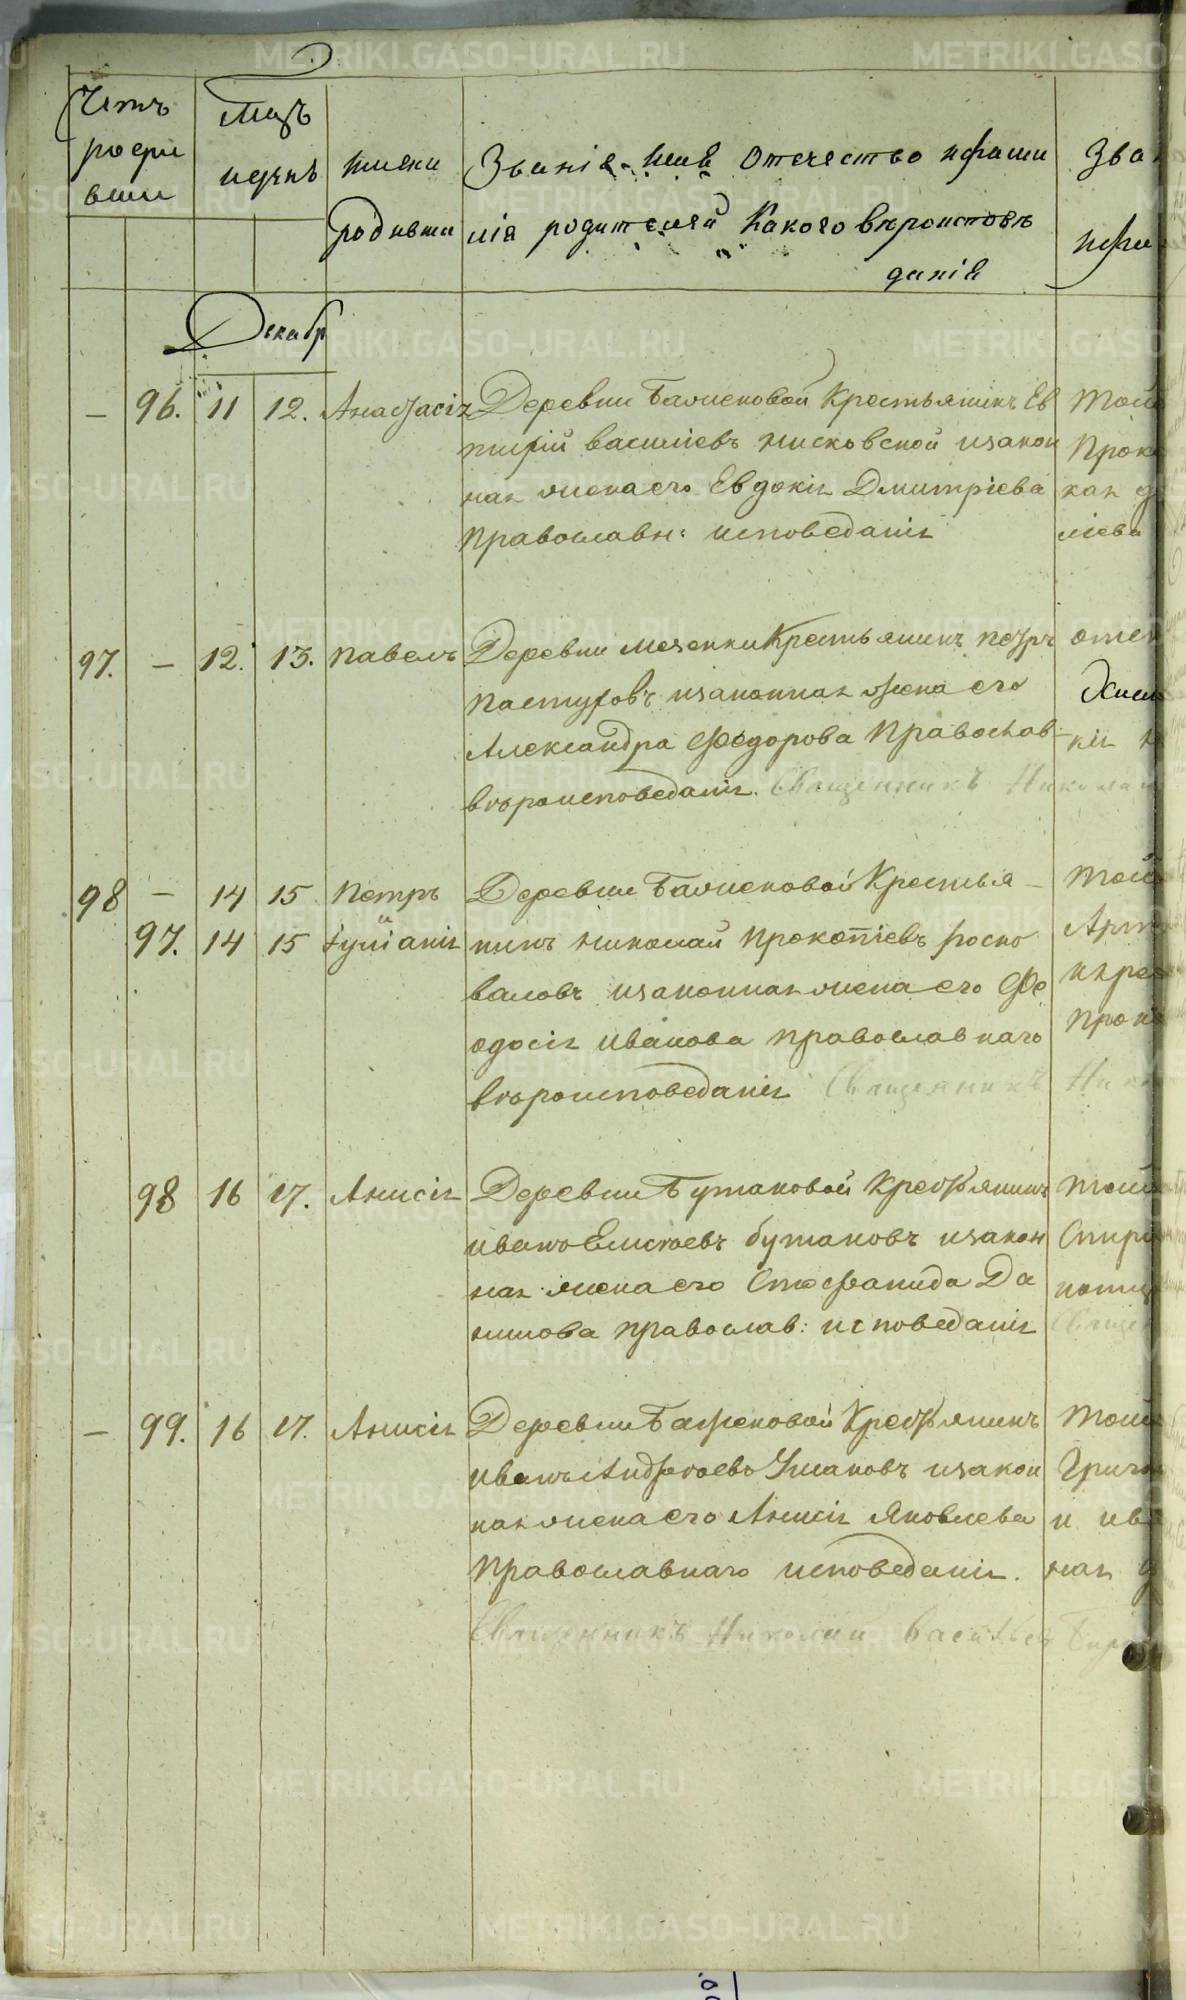 Счетъ
родив
шихся
Мцъ
и день
имена
родивши
Званіе имя отечество и фами
лія родителей какого вѣроисповѣ
данія
Зва
и фа
Декабр
— 96. 11 12. Анастасія
Деревни Баженовой крестьянинъ Ев
тифій васильевъ и закон
ная жена его Евдокія Дмитріева
православн: исповеданія
Той
Проко
ная
ліева
97. — 12. 13. Павелъ
Деревни крестьянинъ петръ
пастуховъ изаконная жена его
Александра Федорова Православ-
вѣроисповеданія. Священникъ Николай
98 — 14 15 Петръ
97. 14 15 Іуліанія
Деревни Баженовой Крестья-
нинъ николай прокопіевъ
изаконная жена его Фе
одосія иванова православнаго
вѣроисповеданія Священникъ Нико
Той
98 16 17. Анисія
Деревни Бутаковой крестьянинъ
иванъ Елисѣевъ бутаковъ изакон
ная жена его Стефанида Да
нилова православ: исповеданія
Той
Спири
Свящ
— 99. 16 17. Анисія
Деревни Баженовой Крестьянинъ
иванъ Андрѣевъ Ушаковъ изакон
ная жена его Анисія Яковлева
православнаго исповеданія.
Священникъ Николай Васильевъ
Той
Григо
и ив
ная
METRIKI.GASO-URAL.RU